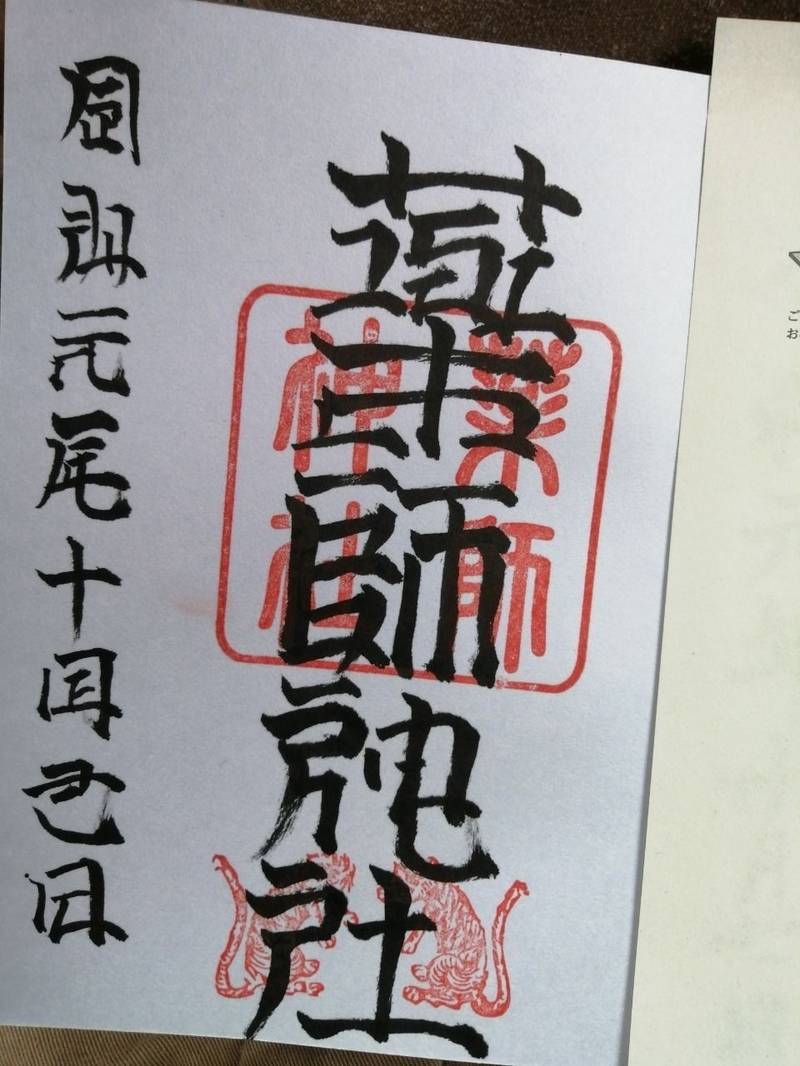 薬師神社
薬師
神社
元年十月
日
ご
お